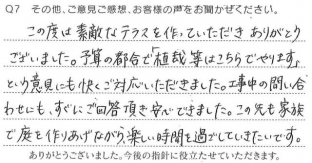 Q7 その他、ご意見ご感想、お客様の声をお聞かせください。
この度は素敵なテラスを作っていただき ありがとう
ございました。予算の都合で「植栽等はこちらでやります」
という意見にも快くご対応いただきました。工事中の問い合
わせにも、すぐにご回答頂き安心できました。この先も家族
で庭を作りあげながら、楽しい時間を過ごしていきたいです。
ありがとうございました。今後の指針に役立たせていただきます。